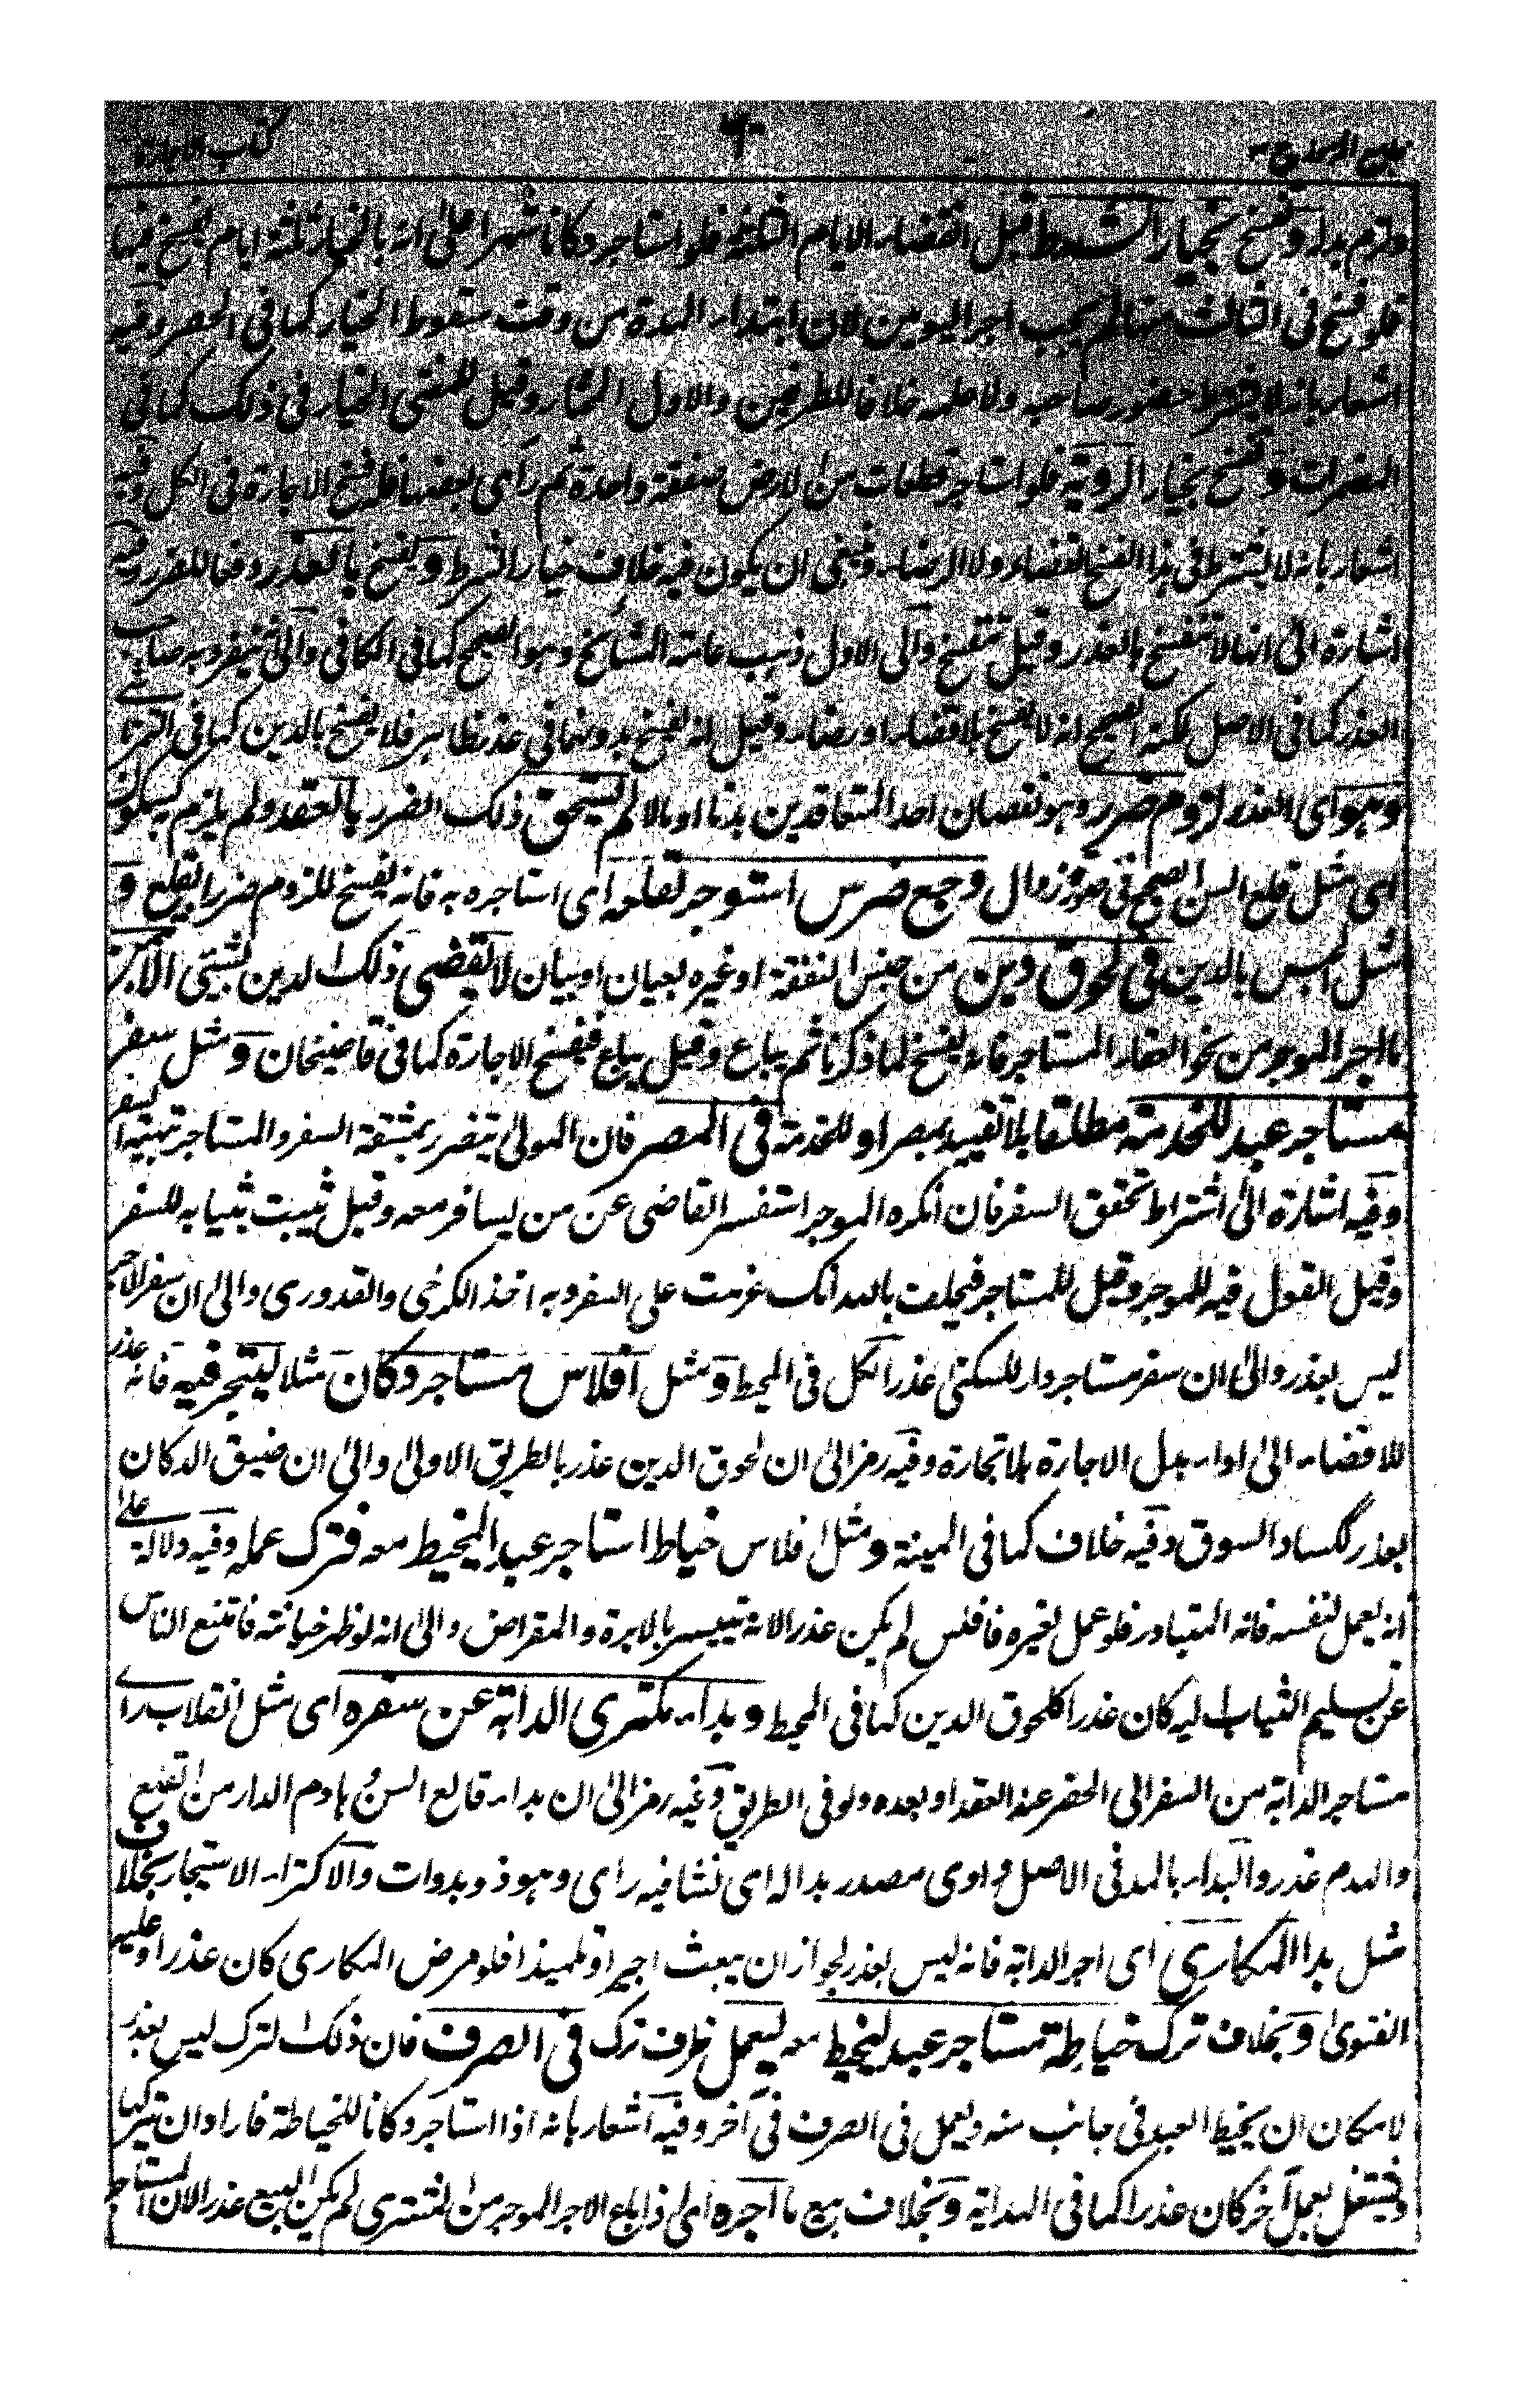 كتاب الاجارة ٦٠ جامع الرموز ٣
وتفسخ بخيار الشرط قبل انقضاء الايام الثلثة فلو استاجر دكانا شهرا على انه بالخيار ثلثة ايام يفسخ فيها
فلو فسخ فى الثالث منها لم يجب اجر اليومين لان ابتداء المدة من وقت سقوط الخيار كما فى وفيه
اشعار بانه لا يشترط حضور صاحبه ولا علمه خلافا للطرفين والاول المختار وقيل للمفتى الخيار فى ذلك كما فى
المضمرات وتفسخ بخيار الروية فلو استاجر قطعات من الارض صفقة واحدة ثم راى بعضها فله فسخ الاجارة فى الكل وفيه
اشعار بانه لا يشترط فى هذا الفسخ القضاء ولا الرضاء وينبغى ان يكون فيه خلاف خيار الشرط وتفسخ بالعذر دفعا للضرر وفيه
اشارة الى انها لا تنفسخ بالعذر وقيل تنفسخ والى الاول ذهب عامة المشائخ وهو الصحيح كما فى الكافى والى انه يتفرد به صاحب
العذر كما فى الاصل لكن الصحيح انه لا يفسخ بلا قضاء او رضاء وقيل انه يفسخ بدونهما فى عذر ظاهر فلا يفسخ بالدين كما فى
وهو اى العذر لزوم ضرر وهو نقصان احد المتعاقدين بدنا او مالا لم يستحق ذلك الضرر بالعقد ولم يلزم به
اى مثل قلع السن الصحيح فى صورة زوال وجع ضرس استوجر لقلعه اى استاجره به فانه يفسخ للزوم ضرر القلع و
مثل الحبس بالدين فى لحوق دين من جنس النفقة او غيره بعيان او بيان لا يقضى ذلك الدين بشيئ الا بثمن
ما اجر الموجر من نحو العقار المستاجر فانه يفسخ لما ذكرنا ثم يباع وقيل يباع فيفسخ الاجارة كما فى قاضيخان ومثل سفر
مستاجر عبد للخدمة مطلقا بلا تقييد بمصر او للخدمة فى المصر فان المولى يتضرر بمشقة السفر والمستاجر بتهيئة السفر
وفيه اشارة الى اشتراط تحقق السفر فان انكره الموجر استفسر القاضى عن من يسافر معه وقيل ثبت بثيابه للسفر
وقيل القول فيه للموجر وقيل للمستاجر فيحلف بالله انك عزمت على السفر وبه اخذ الكرخى والقدورى والى ان سفر الاجير
ليس بعذر والى ان سفر مستاجر دار للسكنى عذر الكل فى المحيط ومثل افلاس مستاجر دكان مثلا ليتجر فيه فانه عذر
للافضاء الى اداء بدل الاجارة بلا تجارة وفيه رمز الى ان لحوق الدين عذر بالطريق الاولى والى ان ضيق الدكان
بعذر ككساد السوق وفيه خلاف كما فى المنية ومثل افلاس خياط استاجر عبدا ليخيط معه فترك عمله وفيه دلالة على
انه يعمل لنفسه فانه المتبادر فلو عمل لغيره فافلس لم يكن عذر الانه تيسير بالابرة والمقراض والى انه لو ظهر خيانته فامتنع الناس
عن تسليم الثياب اليه كان عذرا كلحوق الدين كما فى المحيط وبداء مكترى الدابة عن سفره اى مثل انقلاب راى
مستاجر الدابة من السفر الى الحضر عند العقد او بعده ولو فى الطريق وفيه رمز الى ان بداء قالع السن وهادم الدار من القلع
والهدم عذر والبداء بالمد فى الاصل واوى مصدر بدا له اى نشا فيه راى وهو ذو بدوات والاكتراء الاستيجار بخلاف
مثل بداء المكارى اى اجر الدابة فانه ليس بعذر لجواز ان يبعث اجيرا او تلميذا فلو مرض المكارى كان عذرا وعليه
الفتوى وبخلاف ترك خياطة مستاجر عبد ليخيط معه ليعمل ظرف ترك فى الصرف فان ذلك الترك ليس بعذر
لامكان ان يخيط العبد فى جانب منه ويعمل فى الصرف فى آخر وفيه اشعار بانه اذا استاجر دكانا للخياطة فاراد ان يتركها
ويشتغل بعمل آخر كان عذرا كما فى الهداية وبخلاف بيع ما آجره اى اذا باع الاجر الموجر من المشترى لم يكن البيع عذرا لان المستاجر